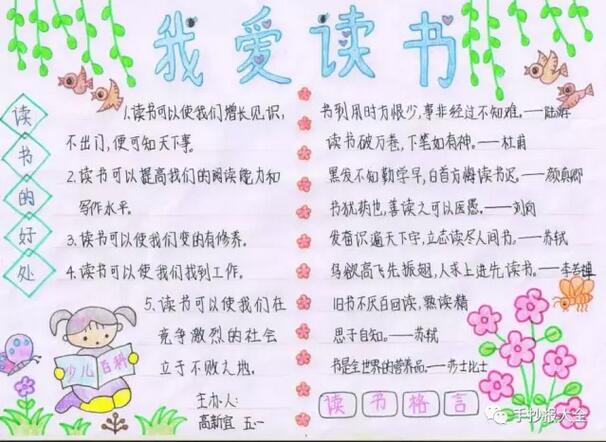 我爱读书
读书的好处
1.读书可以使我们增长见识,
不出门,便可知天下事。
2.读书可以提高我们的阅读能力和
写作水平。
3.读书可以使我们变的有修养。
4.读书可以使我们找到工作。
5.读书可以使我们在
竞争激烈的社会
立于不败之地。
主办人:
高新宜 五一
少儿百科
书到用时方恨少,事非经过不知难。——陆游
读书破万卷,下笔如有神。——杜甫
黑发不知勤学早,白首方悔读书迟。——颜真卿
书犹药也,善读之可以医愚。——刘向
发奋识遍天下字,立志读尽人间书。——苏轼
鸟欲高飞先振翅,人求上进先读书。——李苦禅
旧书不厌百回读,熟读精
思子自知。——苏轼
书是全世界的营养品。——莎士比士
读书格言
手抄报大全